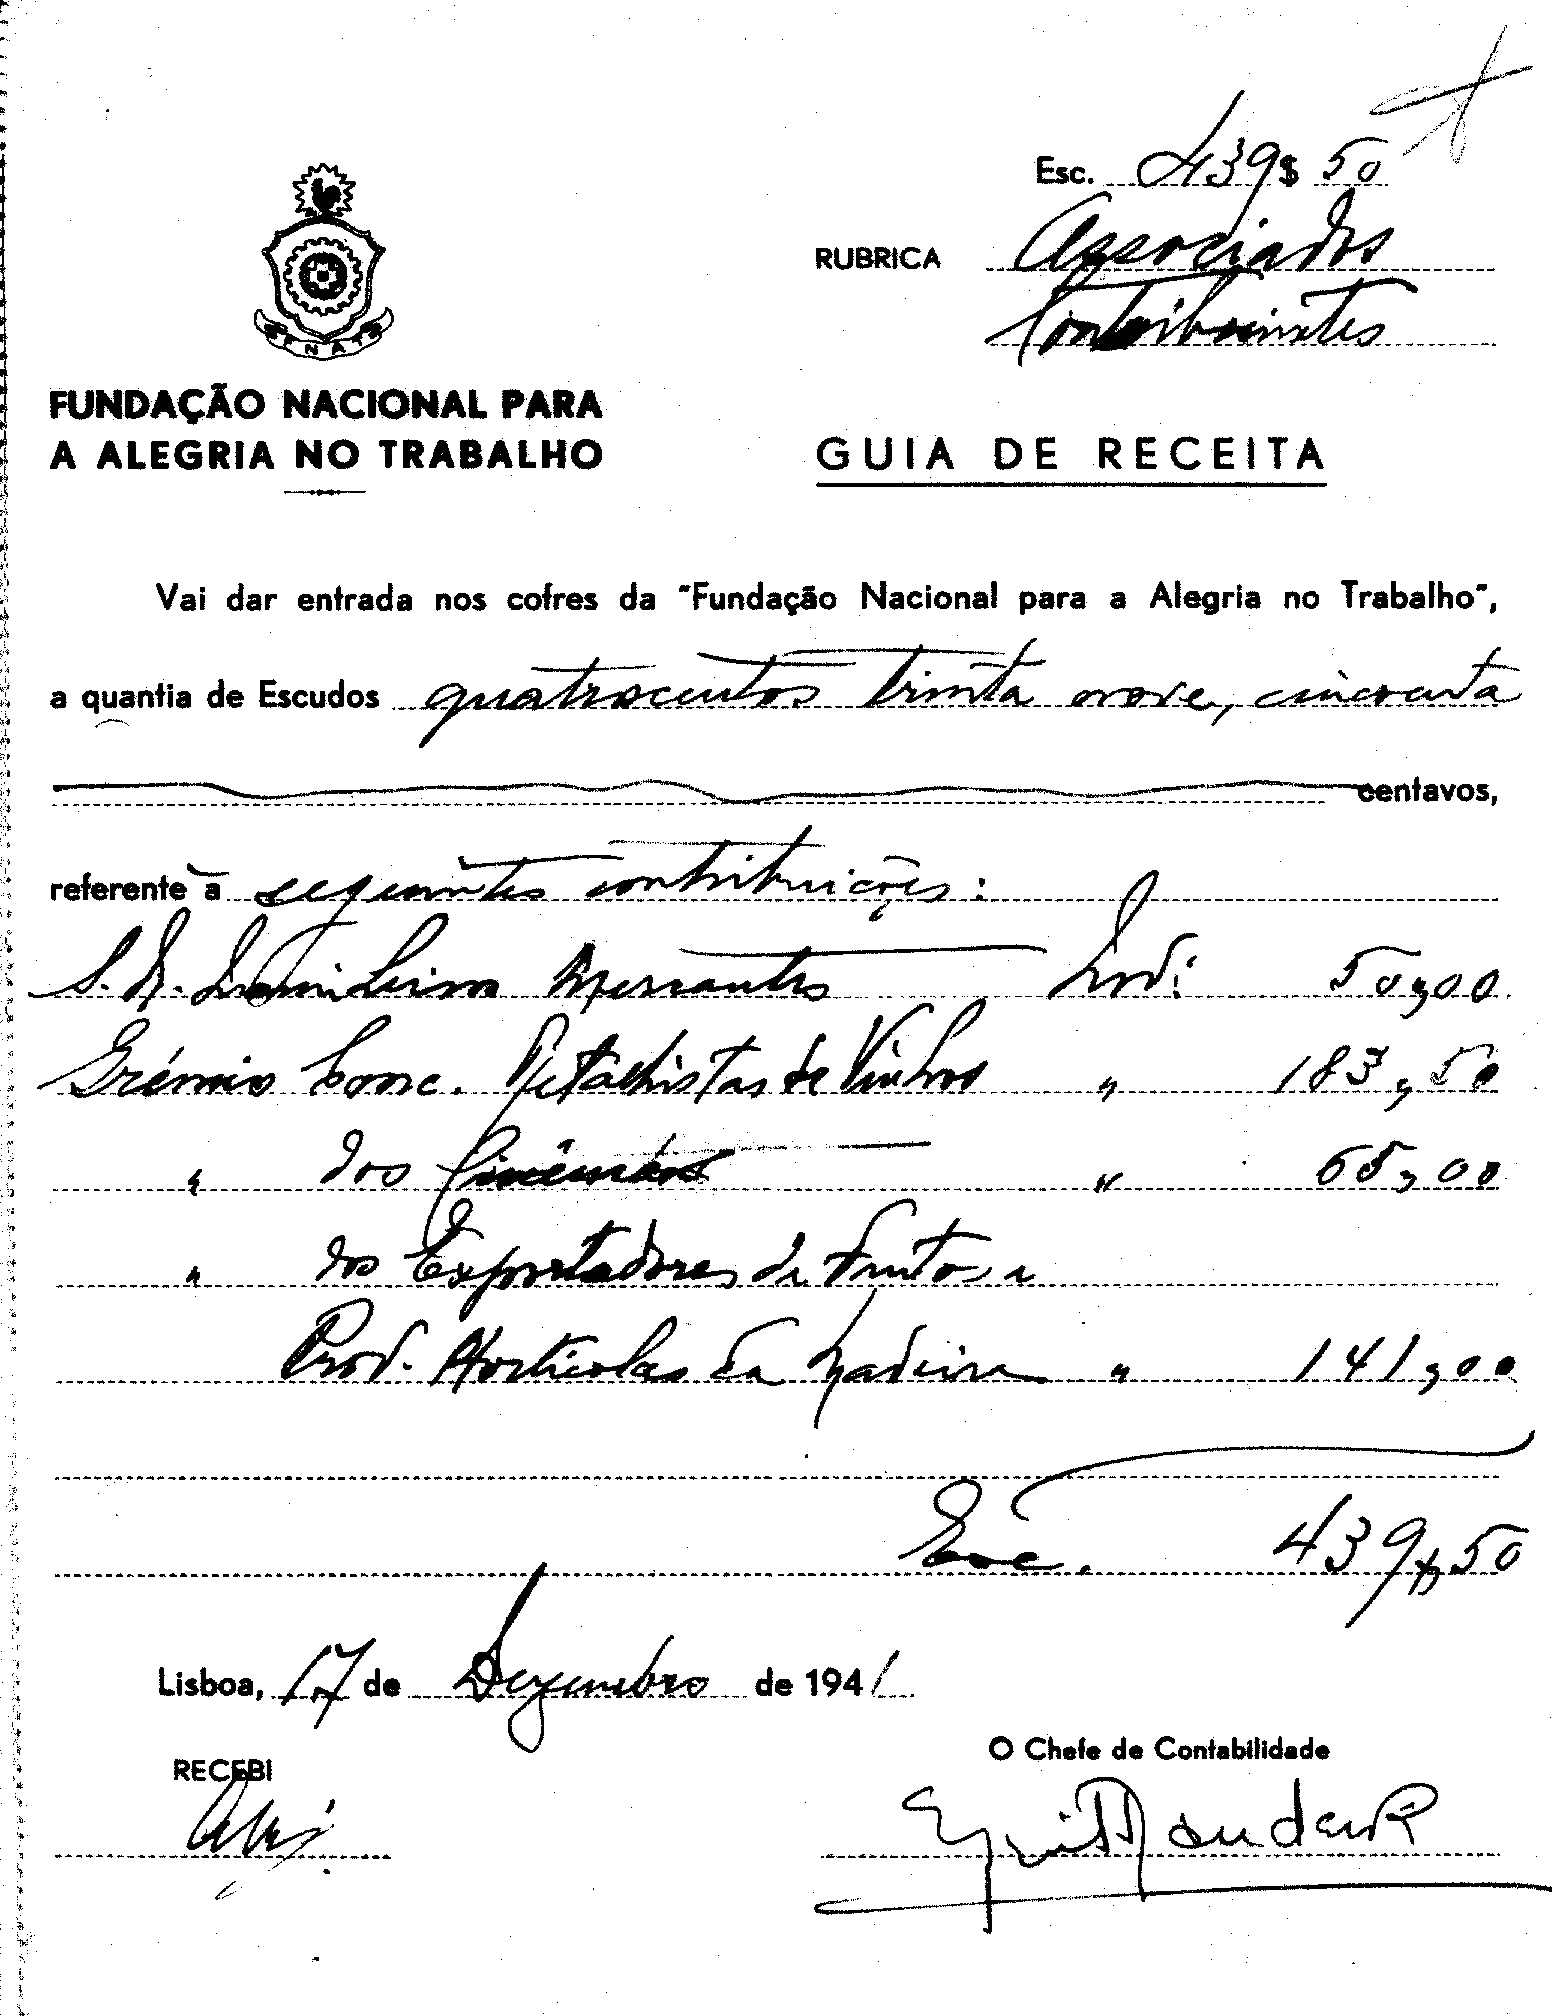 Esc. 439$50
RUBRICA Associados
Contribuintes
FNAT
FUNDAÇÃO NACIONAL PARA
A ALEGRIA NO TRABALHO
GUIA DE RECEITA
Vai dar entrada nos cofres da "Fundação Nacional para a Alegria no Trabalho",
a quantia de Escudos quatrocentos trinta nove, cincoenta
centavos,
referente a seguintes contribuições:
S. N. Mercantes Nov: 50,00
Grémio Conc. Retalhistas de Vinhos " 183,50
" dos Cinemas " 65,00
" dos Exportadores de Fruto, e
Prod. Hortícolas da Madeira " 141,00
Esc. 439$50
Lisboa, 17 de Dezembro de 1941
RECEBI
O Chefe de Contabilidade